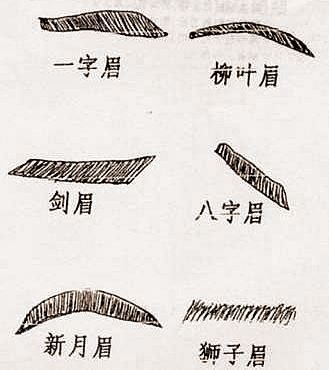 一字眉
柳叶眉
剑眉
八字眉
新月眉
狮子眉